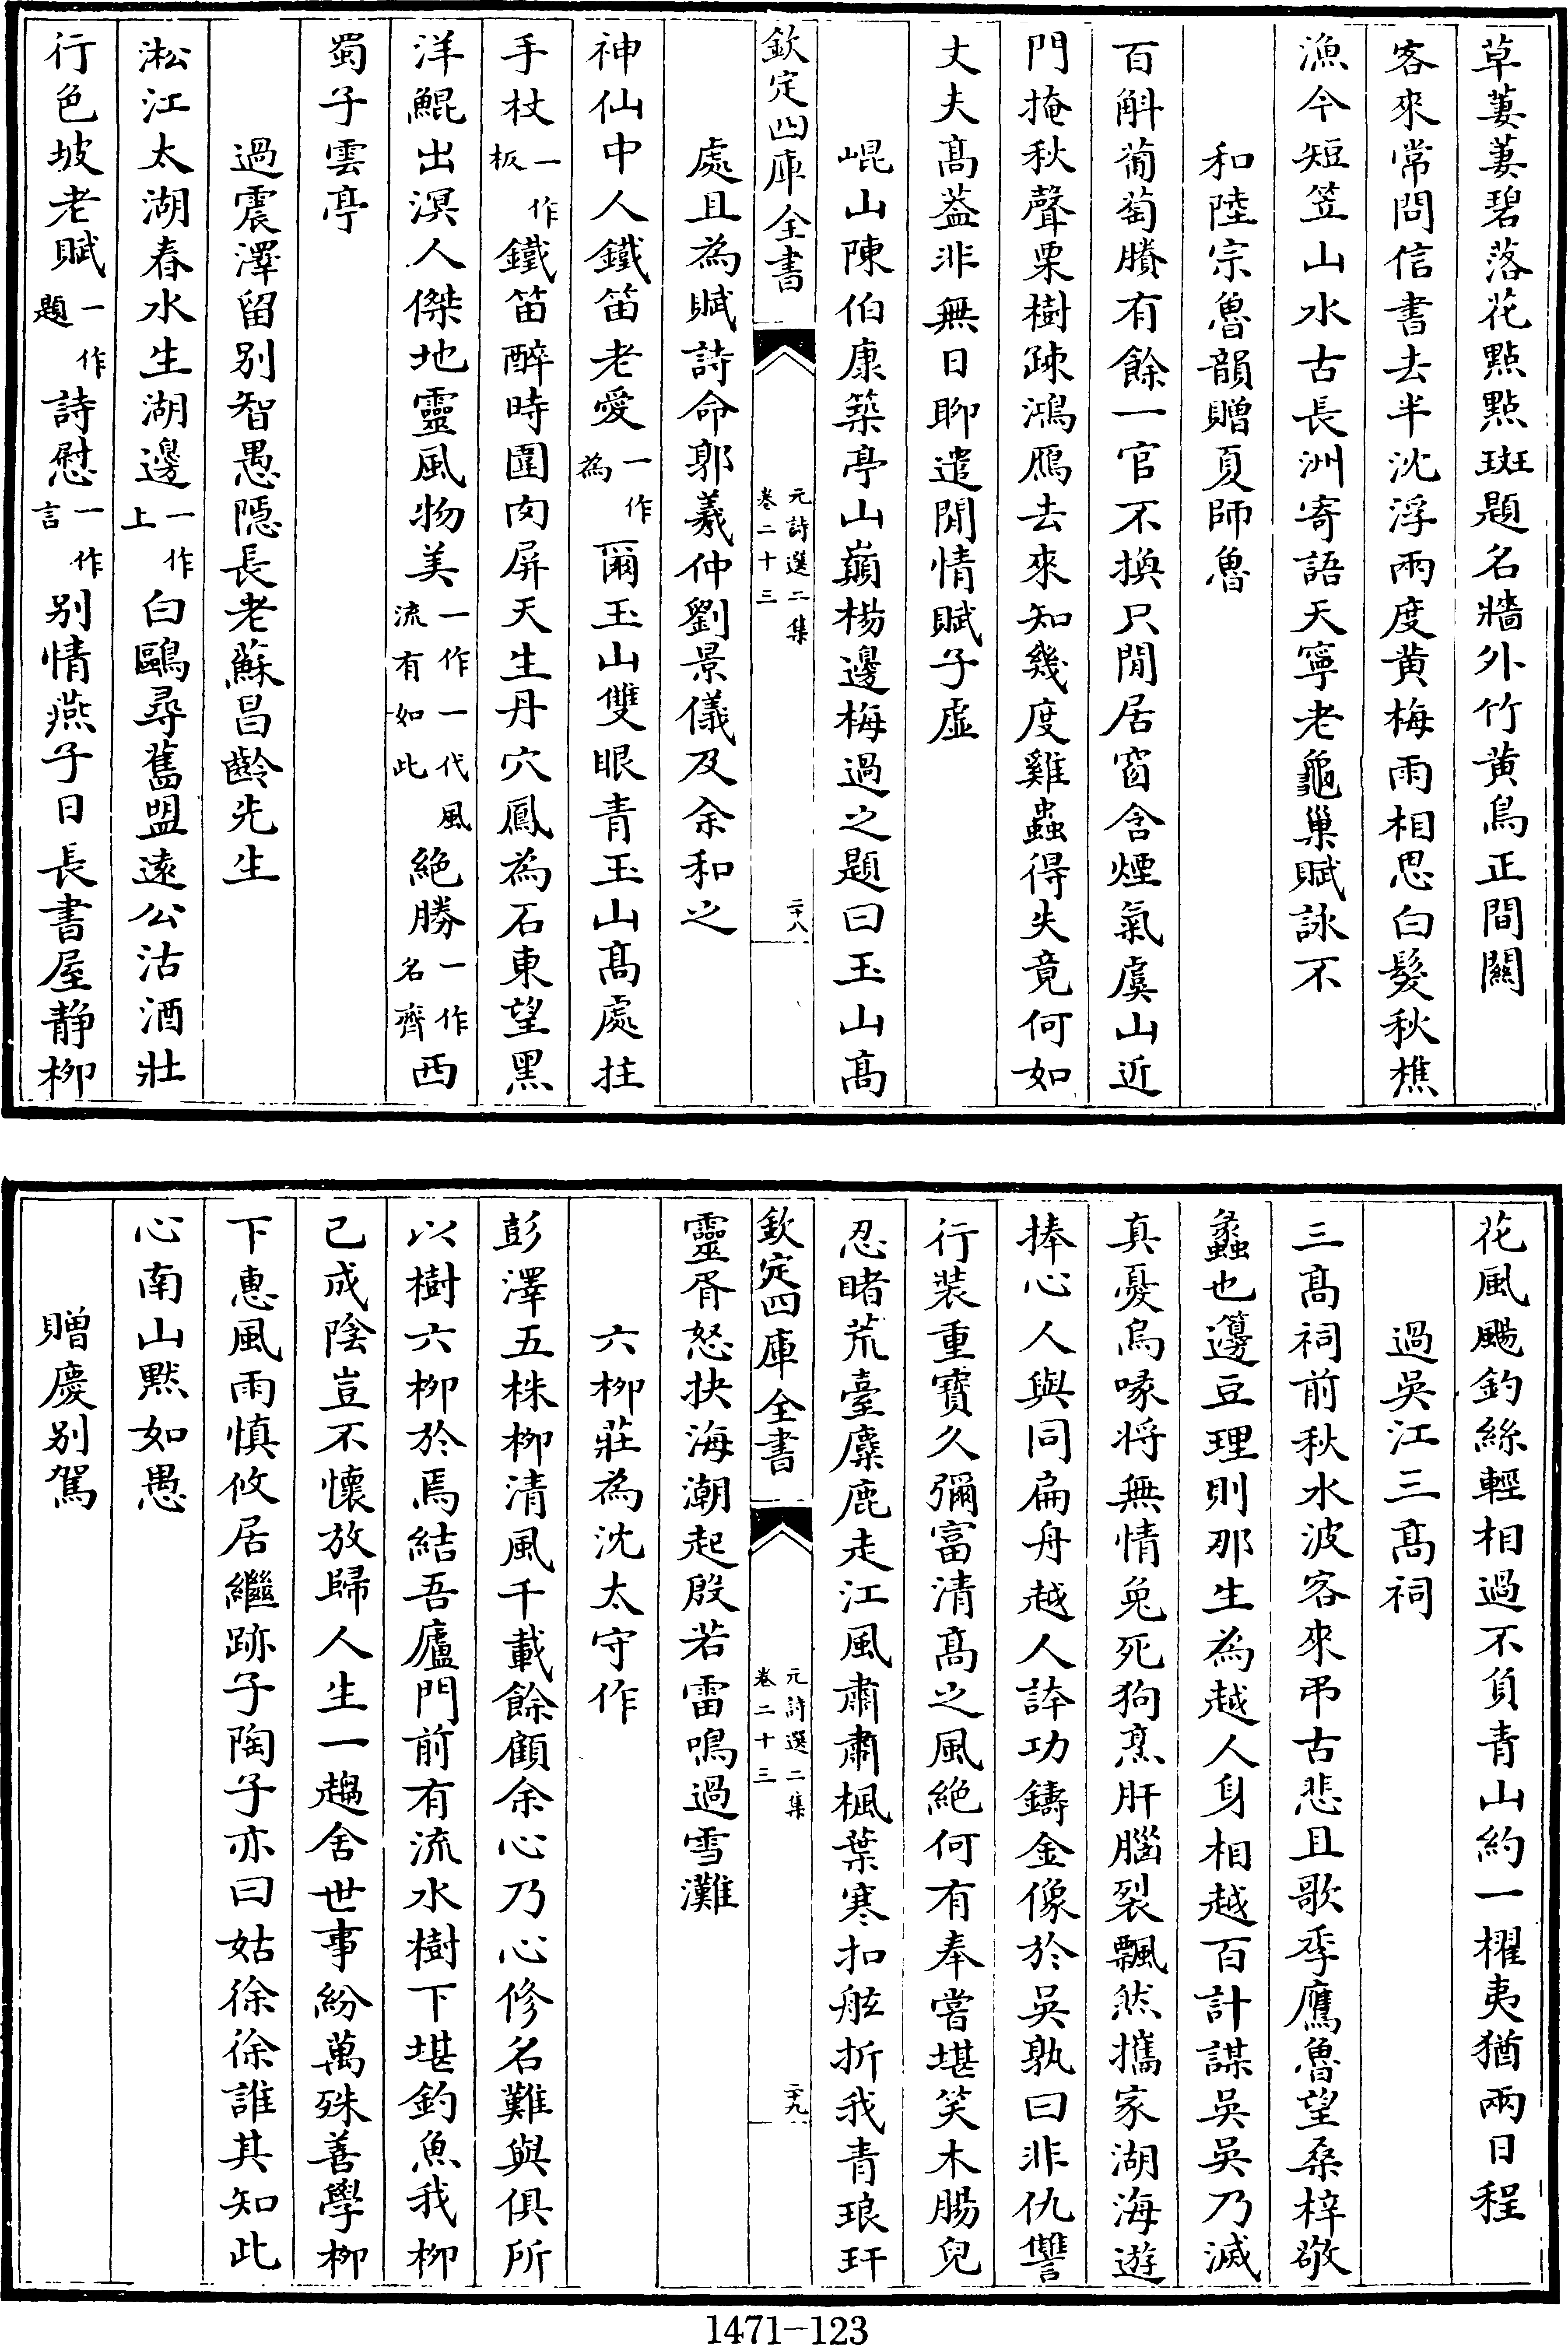 草萋萋碧落花點點斑題名牆外竹黄鳥正間關
客來常問信書去半沈浮兩度黄梅雨相思白髮秋樵
漁今短笠山水古長洲寄語天寧老龜巢賦詠不
和陸宗魯韻贈夏師魯
百斛葡萄賸有餘一官不換只閒居窗含煙氣虞山近
門掩秋聲栗樹疎鴻鴈去來知幾度雞蟲得失竟何如
丈夫髙葢非無日聊遣閒情賦子虚
崐山陳伯康築亭山巔楊邊梅過之題曰玉山髙
欽定四庫全書
元詩選二集
卷二十三
二十八
處且為賦詩命郭羲仲劉景儀及余和之
神仙中人鐵笛老愛一作為爾玉山雙眼青玉山髙處拄
手杖一作板鐵笛醉時圍肉屏天生丹穴鳳為石東望黑
洋鯤出溟人傑地靈風物美一作一代風流有如此絶勝一作名齊西
蜀子雲亭
過震澤留别智愚隠長老蘇昌齡先生
淞江太湖春水生湖邊一作上白鷗尋舊盟逺公沽酒壯
行色坡老賦一作題詩慰一作言别情燕子日長書屋静柳
花風颺釣絲輕相過不負青山約一櫂夷猶兩日程
過吳江三髙祠
三髙祠前秋水波客來弔古悲且歌季鷹魯望桑梓敬
蠡也籩豆理則那生為越人身相越百計謀吳吳乃滅
真憂烏喙将無情兔死狗烹肝腦裂飄然攜家湖海遊
捧心人與同扁舟越人誶功鑄金像於吳孰曰非仇讐
行装重寶久彌富清髙之風絶何有奉嘗堪笑木腸兒
忍睹荒臺麋鹿走江風肅肅楓葉寒扣舷折我青琅玕
欽定四庫全書
元詩選二集
卷二十三
二十九
靈胥怒抉海潮起殷若雷鳴過雪灘
六柳莊為沈太守作
彭澤五株柳清風千載餘顧余心乃心修名難與俱所
以樹六柳於焉結吾廬門前有流水樹下堪釣魚我柳
已成陰豈不懷放歸人生一趨舍世事紛萬殊善學柳
下惠風雨慎攸居繼跡子陶子亦曰姑徐徐誰其知此
心南山黙如愚
贈慶别駕
1471-123